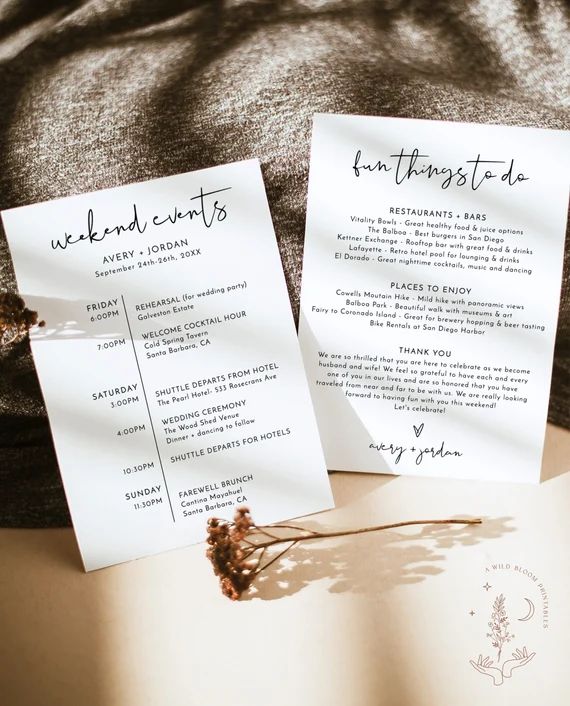 weekend events
AVERY + JORDAN
September 24th-26th, 20XX
FRIDAY
6:00PM
REHEARSAL (for wedding party)
Galveston Estate
7:00PM
WELCOME COCKTAIL HOUR
Cold Spring Tavern
Santa Barbara, CA
SATURDAY
3:00PM
SHUTTLE DEPARTS FROM HOTEL
The Pearl Hotel- 533 Rosecrans Ave
4:00PM
WEDDING CEREMONY
The Wood Shed Venue
Dinner + dancing to follow
10:30PM
SHUTTLE DEPARTS FOR HOTELS
SUNDAY
11:30PM
FAREWELL BRUNCH
Cantina Mayahuel
Santa Barbara, CA
fun things to do
RESTAURANTS + BARS
Vitality Bowls - Great healthy food & juice options
The Balboa - Best burgers in San Diego
Kettner Exchange - Rooftop bar with great food & drinks
Lafayette - Retro hotel pool for lounging & drinks
El Dorado - Great nighttime cocktails, music and dancing
PLACES TO ENJOY
Cowells Moutain Hike - Mild hike with panoramic views
Balboa Park - Beautiful walk with museums & art
Fairy to Coronado Island - Great for brewery hopping & beer tasting
Bike Rentals at San Diego Harbor
THANK YOU
We are so thrilled that you are here to celebrate as we become
husband and wife! We feel so grateful to have each and every
one of you in our lives and are so honored that you have
traveled from near and far to be with us. We are really looking
forward to having fun with you this weekend!
Let's celebrate!
avery + jordan
A WILD BLOOM PRINTABLES